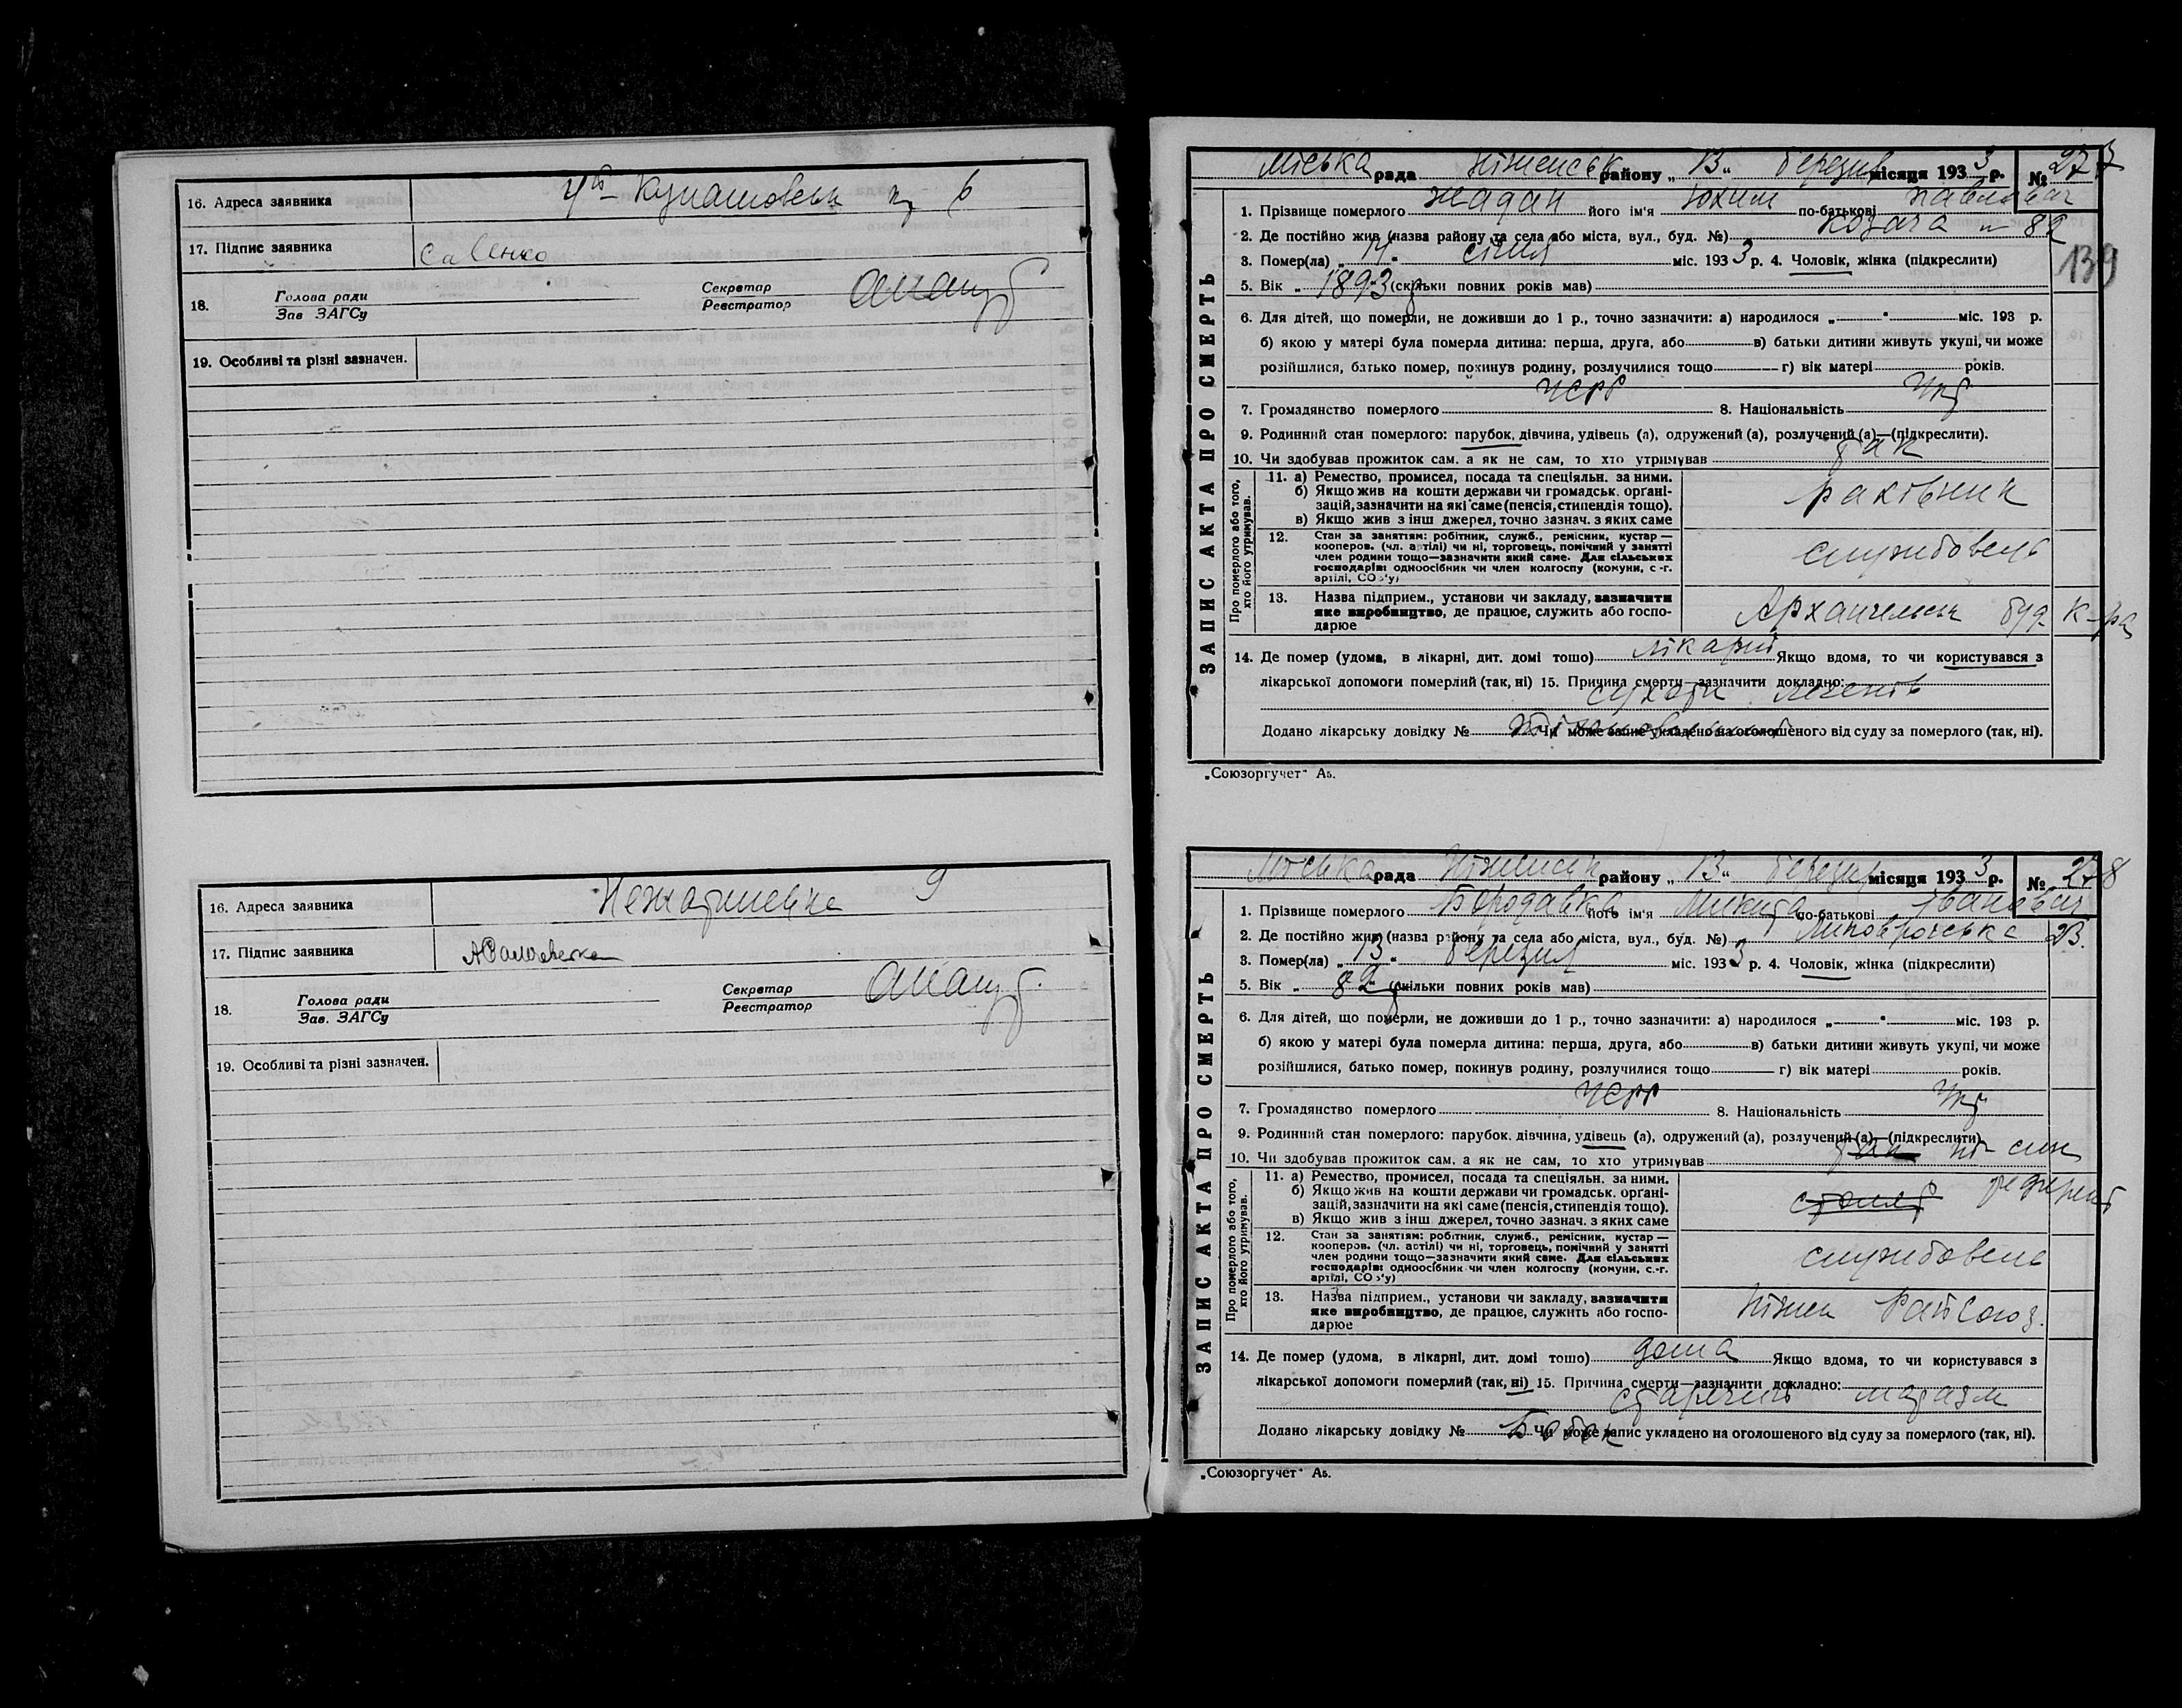 16. Адреса заявника 6
17. Підпис заявника Савенко
18. Голова ради
Зав ЗАГСу
Секретар
Реєстратор
19. Особливі та різні зазначен.
16. Адреса заявника 9
17. Підпис заявника
18. Голова ради
Зав. ЗАГСу
Секретар
Реєстратор
19. Особливі та різні зазначен.
ЗАПИС АКТА ПРО СМЕРТЬ
Міська рада Ніженськ району „ 13 “ березня місяця 1933 р. № 277
1. Прізвище померлого Жадан його ім'я Юхим по-батькові Павлович
2. Де постійно жив (назва району та села або міста, вул., буд. №) Козача № 82
139
3. Помер(ла) „ 14 “ січня міс. 1933 р. 4. Чоловік, жінка (підкреслити)
5. Вік „ 1893 (скільки повних років мав)
6. Для дітей, що померли, не доживши до 1 р., точно зазначити: а) народилося „ “ міс. 193 р.
б) якою у матері була померла дитина: перша, друга, або в) батьки дитини живуть укупі, чи може
розійшлися, батько помер, покинув родину, розлучилися тощо г) вік матері років.
7. Громадянство померлого УСРР 8. Національність Укр
9. Родинний стан померлого: парубок, дівчина, удівець (а), одружений (а), розлучений (а)—(підкреслити).
10. Чи здобував прожиток сам, а як не сам, то хто утримував так
Про померлого або того, хто його утримував.
11. а) Ремество, промисел, посада та спеціяльн. за ними.
б) Якщо жив на кошти держави чи громадськ. орґані-
зацій, зазначити на які саме (пенсія, стипендія тощо).
в) Якщо жив з інш джерел, точно зазнач. з яких саме
рахівник
12. Стан за заняттям: робітник, служб., ремісник, кустар—
кооперов. (чл. артілі) чи ні, торговець, помічний у занятті
член родини тощо—зазначити який саме. Для сільських
господарів: одноосібник чи член колгоспу (комуни, с.-г.
артілі, СОЗ'у)
службовець
13. Назва підприєм., установи чи закладу, зазначити
яке виробництво, де працює, служить або госпо-
дарює
Архангельськ буд к-ра
14. Де помер (удома, в лікарні, дит. домі тощо) лікарні Якщо вдома, то чи користувався з
лікарської допомоги померлий (так, ні) 15. Причина смерти—зазначити докладно:
сухоти легенів
Додано лікарську довідку № Чи може запис укладено на оголошеного від суду за померлого (так, ні).
„Союзоргучет“ А₅.
ЗАПИС АКТА ПРО СМЕРТЬ
Міська рада Ніженськ району „ 13 “ березня місяця 1933 р. № 278
1. Прізвище померлого Бородавка його ім'я Микита по-батькові Іванович
2. Де постійно жив (назва району та села або міста, вул., буд. №) 23.
3. Помер(ла) „ 13 “ березня міс. 1933 р. 4. Чоловік, жінка (підкреслити)
5. Вік „ 82 р (скільки повних років мав)
6. Для дітей, що померли, не доживши до 1 р., точно зазначити: а) народилося „ “ міс. 193 р.
б) якою у матері була померла дитина: перша, друга, або в) батьки дитини живуть укупі, чи може
розійшлися, батько помер, покинув родину, розлучилися тощо г) вік матері років.
7. Громадянство померлого УСРР 8. Національність Укр
9. Родинний стан померлого: парубок, дівчина, удівець (а), одружений (а), розлучений (а)—(підкреслити).
10. Чи здобував прожиток сам, а як не сам, то хто утримував так ні- син
Про померлого або того, хто його утримував.
11. а) Ремество, промисел, посада та спеціяльн. за ними.
б) Якщо жив на кошти держави чи громадськ. орґані-
зацій, зазначити на які саме (пенсія, стипендія тощо).
в) Якщо жив з інш джерел, точно зазнач. з яких саме
референт
12. Стан за заняттям: робітник, служб., ремісник, кустар—
кооперов. (чл. артілі) чи ні, торговець, помічний у занятті
член родини тощо—зазначити який саме. Для сільських
господарів: одноосібник чи член колгоспу (комуни, с.-г.
артілі, СОЗ'у)
службовець
13. Назва підприєм., установи чи закладу, зазначити
яке виробництво, де працює, служить або госпо-
дарює
Ніжен Райсоюз.
14. Де помер (удома, в лікарні, дит. домі тощо) дома Якщо вдома, то чи користувався з
лікарської допомоги померлий (так, ні) 15. Причина смерти—зазначити докладно:
старечий маразм
Додано лікарську довідку № Чи може запис укладено на оголошеного від суду за померлого (так, ні).
„Союзоргучет“ А₅.